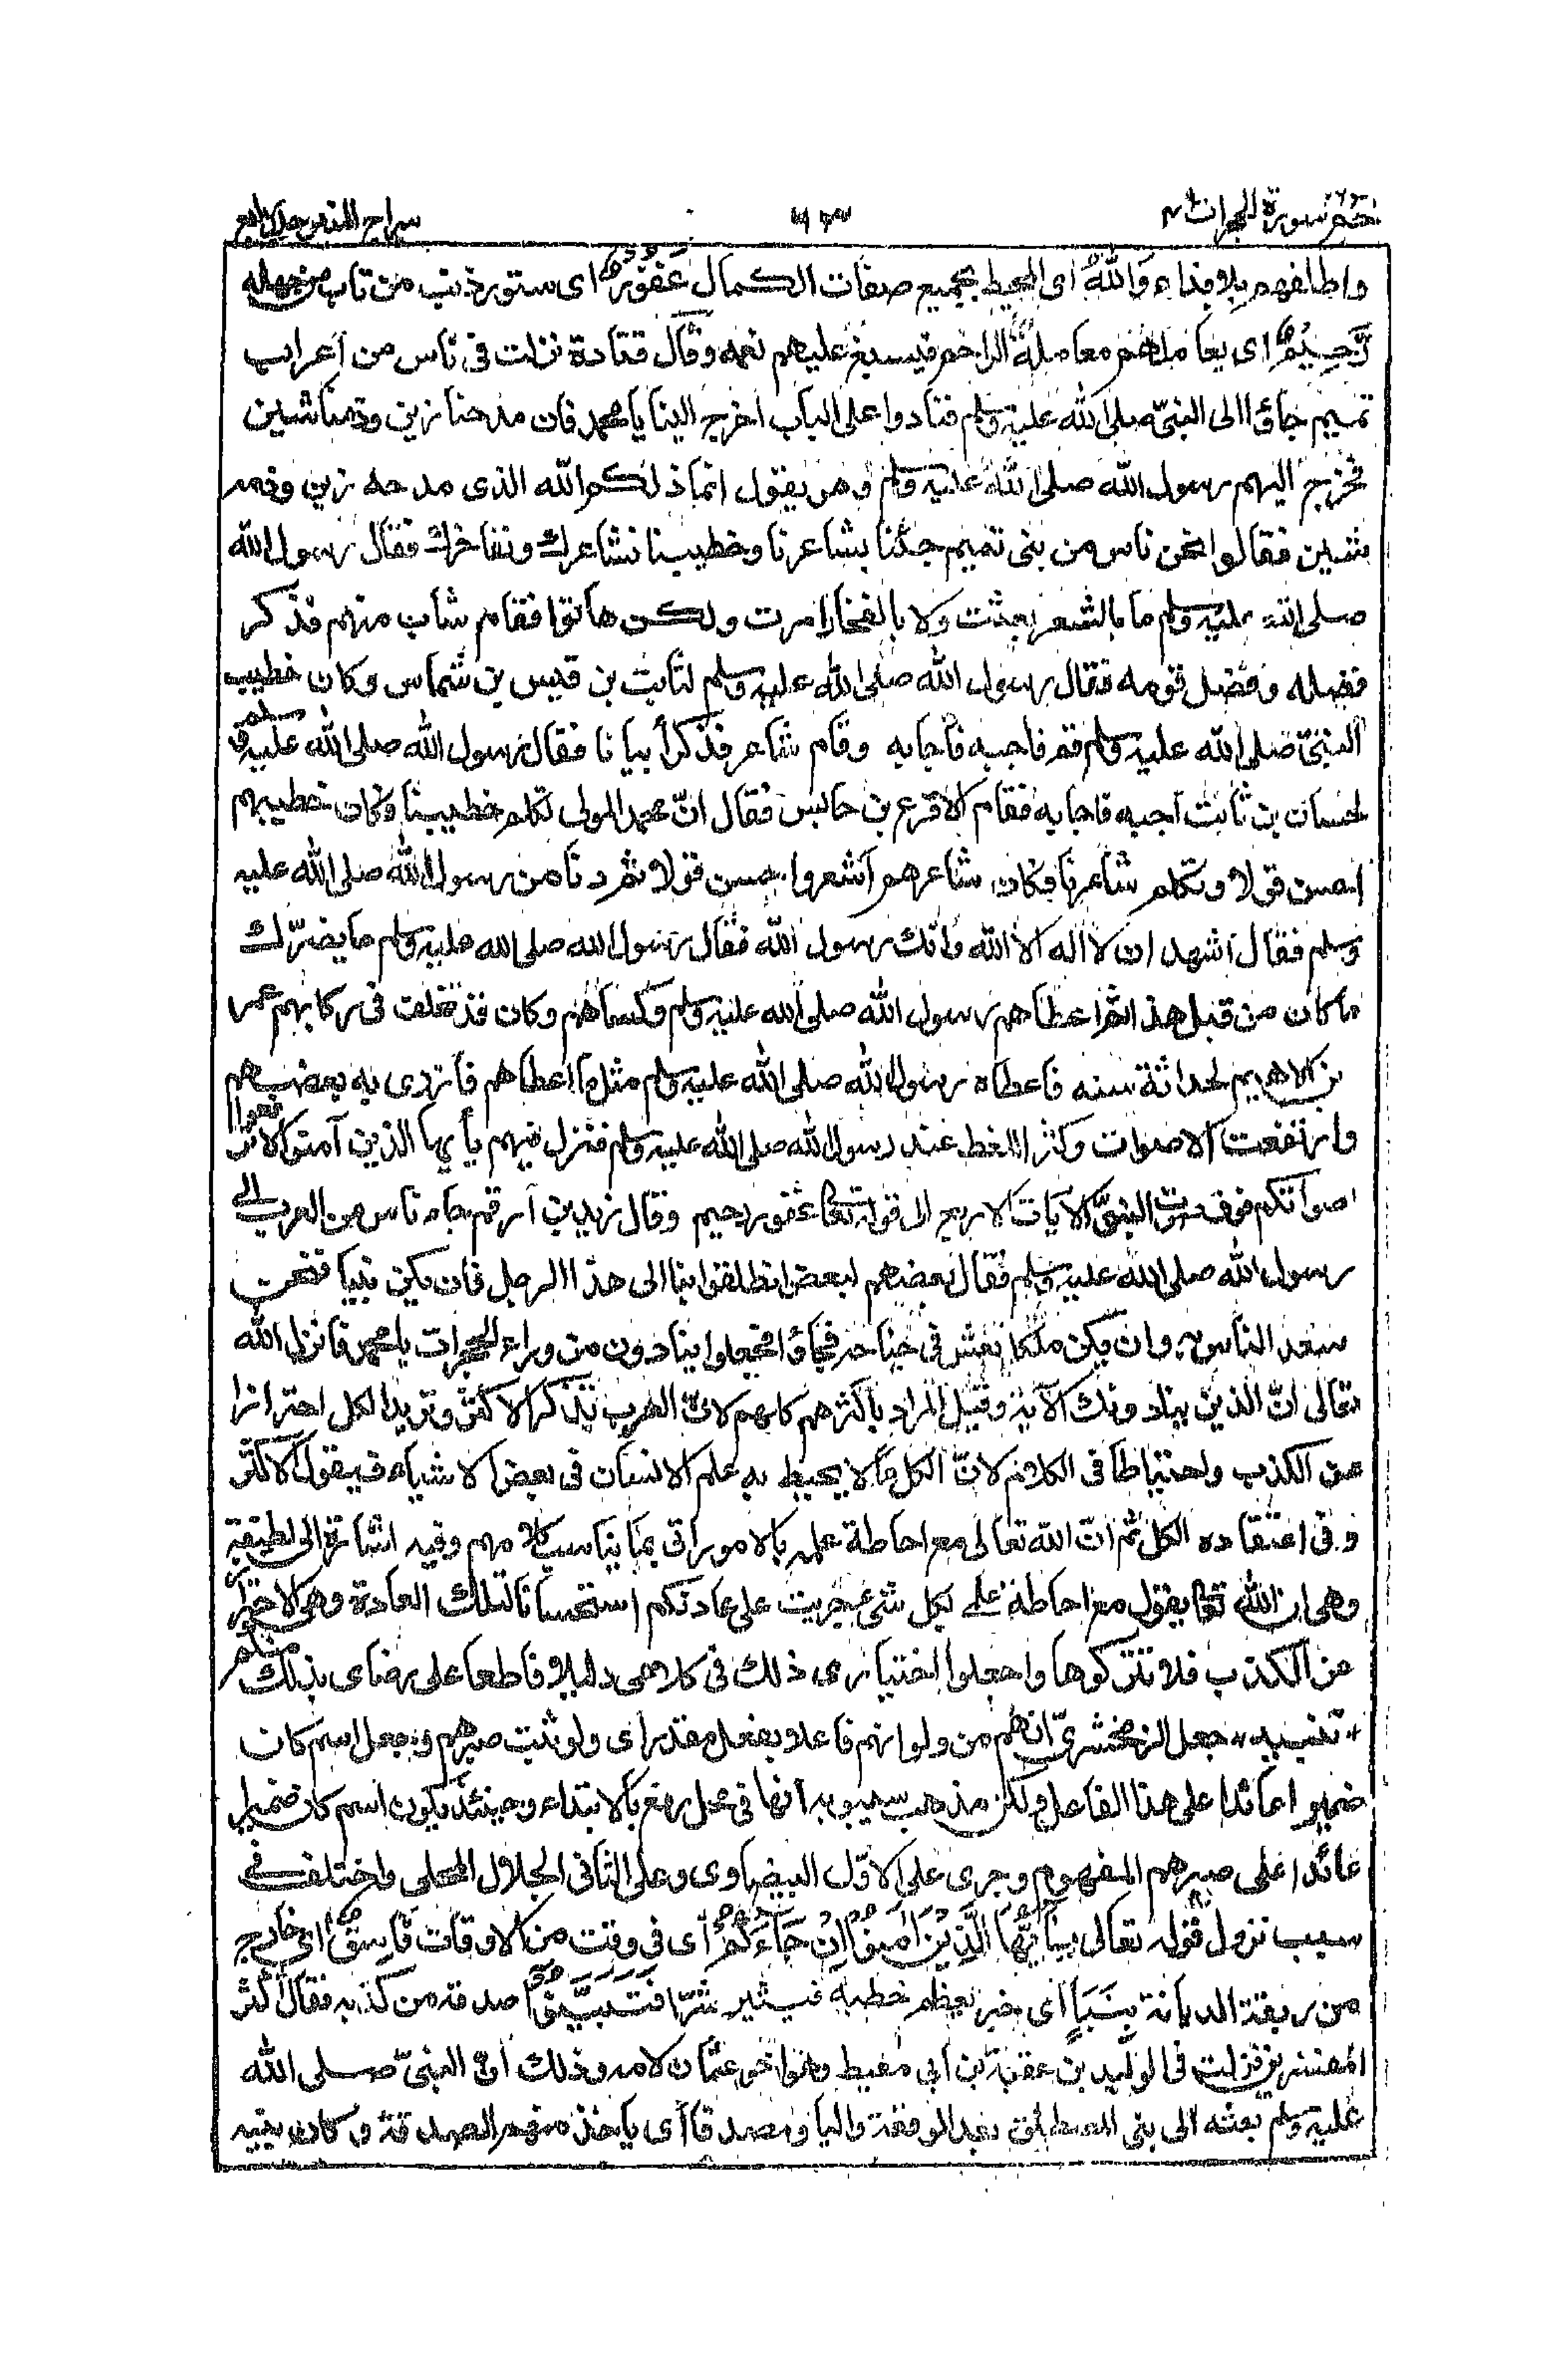 حم سورة الحجرات
سراج المنير جلد رابع
واطلقهم بلا فداء وَاللهُ اى المحيط بجميع صفات الكمال غَفُوْرٌ اى ستور ذنب من تاب من جهله
رَّحِيْمٌ اى يعاملهم معاملة الراحم فيسبغ عليهم نعمه وقال قتادة نزلت فى ناس من أعراب
تميم جاؤا الى النبىّ صلى الله عليه وسلم فنادوا على الباب اخرج الينا يا محمد فان مدحنا زين وذمنا شين
فخرج اليهم رسول الله صلى الله عليه وسلم وهو يقول انما ذلكم الله الذى مدحه زين وذمه
شين فقالوا نحن ناس من بنى تميم جئنا بشاعرنا وخطيبنا نشاعرك ونفاخرك فقال رسول الله
صلى الله عليه وسلم ما بالشعر بعثت ولا بالفخار امرت ولكن هاتوا فقام شاب منهم فذكر
فضله وفضل قومه فقال رسول الله صلى الله عليه وسلم لثابت بن قيس بن شماس وكان خطيب
النبىّ صلى الله عليه وسلم قم فاجبه فأجابه وقام شاعر فذكر أبياتا فقال رسول الله صلى الله عليه وسلم
لحسان بن ثابت أجبه فاجابه فقام الاقرع بن حابس فقال انّ محمدا لمولى تكلم خطيبنا وكان خطيبهم
احسن قولا وتكلم شاعرنا فكان شاعرهم أشعر واحسن قولا ثم دنا من رسول الله صلى الله عليه
وسلم فقال أشهد ان لا اله الا الله وانك رسول الله فقال رسول الله صلى الله عليه وسلم ما يضرّك
ما كان من قبل هذا ثم اعطاهم رسول الله صلى الله عليه وسلم وكساهم وكان قد تخلف فى ركابهم عمرو
بن الاهتم لحداثة سنه فاعطاه رسول الله صلى الله عليه وسلم مثل ما اعطاهم فأزرى به بعضهم
وارتفعت الاصوات وكثر اللغط عند رسول الله صلى الله عليه وسلم فنزل فيهم يأيها الذين آمنوا لا ترفعوا
اصواتكم فوق صوت النبىّ الآيات الاربع الى قوله تعالى غفور رحيم وقال زيد بن أرقم جاء ناس من العرب الى
رسول الله صلى الله عليه وسلم فقال بعضهم لبعض انطلقوا بنا الى هذا الرجل فان يكن نبيا فنحن
سعد الناس به وان يكن ملكا نعش فى جناحه فجاؤا فجعلوا ينادون من وراء الحجرات يا محمد فانزل الله
تعالى انّ الذين ينادونك الآية وقيل المراد باكثرهم كلهم لانّ العرب تذكر الاكثر وتريد الكل احترازا
عن الكذب واحتياطا فى الكلام لانّ الكل مما لا يحيط به علم الانسان فى بعض الاشياء فيقول الاكثر
وفى اعتقاده الكل ثم انّ الله تعالى مع احاطة علمه بالامور اتى بما يناسب كلامهم وفيه اشارة الى لطيفة
وهى ان الله تعالى يقول مع احاطة علمى بكل شئ جريت على عادتكم استحسانا لتلك العادة وهى الاحتراز
عن الكذب فلا تتركوها واجعلوا اختيارى ذلك فى كلامى دليلا قاطعا على رضاى بذلك منكم
* تنبيه * جعل الزمخشرىّ انهم من ولو انهم فاعلا بفعل مقدر اى ولو ثبت صبرهم وجعل اسم كان
ضميرا عائدا على هذا الفاعل ولكن مذهب سيبويه أنها فى محل رفع بالابتداء وحينئذ يكون اسم كان ضميرا
عائدا على صبرهم المفهوم وجرى على الاوّل البيضاوى وعلى الثانى الجلال المحلى واختلف فى
سبب نزول قوله تعالى يٰأَيُّهَا الَّذِيْنَ اٰمَنُوْا اِنْ جَاءَكُمْ أى فى وقت من الاوقات فَاسِقٌ اى خارج
من ربقة الديانة بِنَبَإٍ أى خبر يعظم خطبه فيثير شرّا فَتَبَيَّنُوْا صدقه من كذبه فقال أكثر
المفسرين نزلت فى الوليد بن عقبة بن أبى معيط وهو أخو عثمان لامه وذلك انّ النبىّ صلى الله
عليه وسلم بعثه الى بنى المصطلق بعد الوقعة واليا ومصدقا أى يأخذ منهم الصدقة وكان بينه